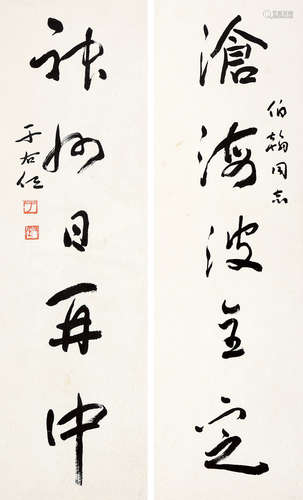 滄海波全定
伯同志
神州日再中
于右任